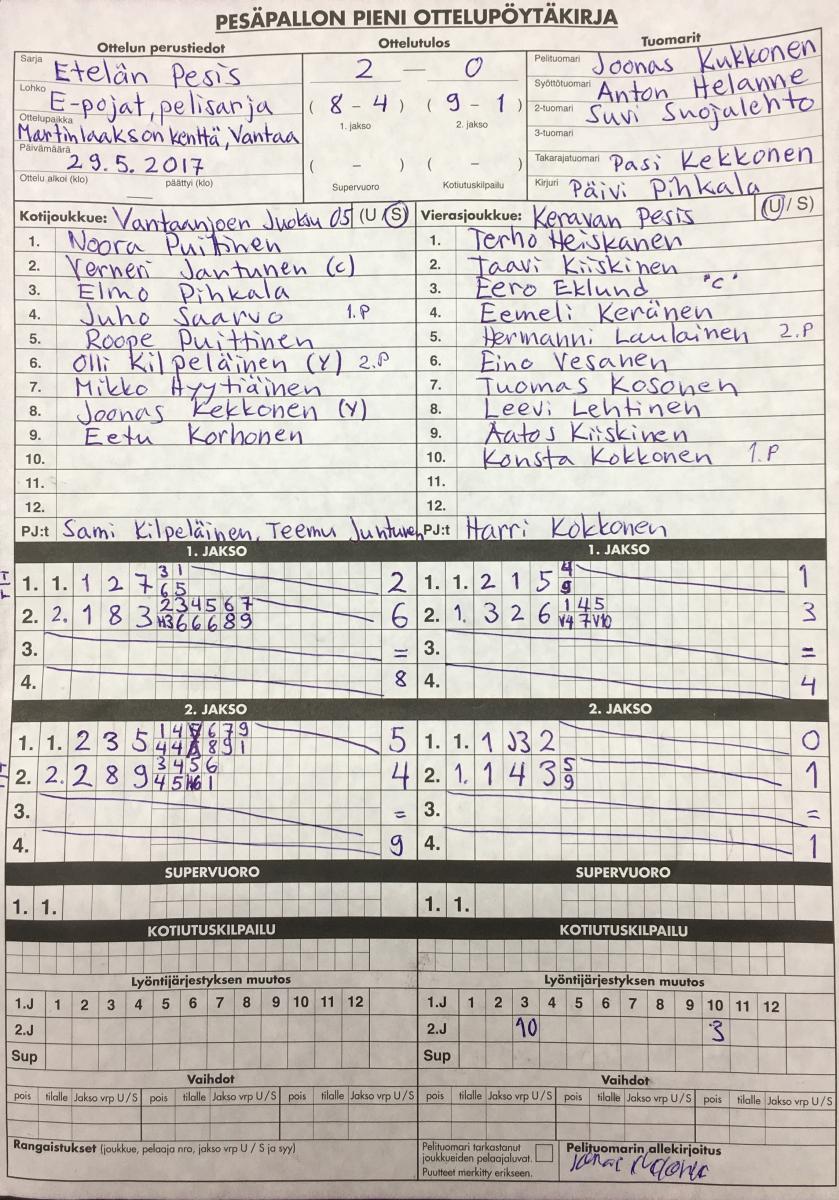 PESÄPALLON PIENI OTTELUPÖYTÄKIRJA
Ottelun perustiedot
Sarja Etelän Pesis
Lohko E-pojat, pelisarja
Ottelupaikka Martinlaakson kenttä, Vantaa
Päivämäärä 29.5.2017
Ottelu alkoi (klo) — päättyi (klo)
Ottelutulos
2 — 0
( 8 - 4 ) ( 9 - 1 )
1. jakso 2. jakso
( - ) ( - )
Supervuoro Kotiutuskilpailu
Tuomarit
Pelituomari Joonas Kukkonen
Syöttötuomari Anton Helanne
2-tuomari Suvi Suojalehto
3-tuomari
Takarajatuomari Pasi Kekkonen
Kirjuri Päivi Pihkala
Kotijoukkue: Vantaanjoen Juoksu 05 (U / S)
1. Noora Puittinen
2. Verneri Jantunen (c)
3. Elmo Pihkala
4. Juho Saarvo 1.P
5. Roope Puittinen
6. Olli Kilpeläinen (Y) 2.P
7. Mikko Hyytiäinen
8. Joonas Kekkonen (Y)
9. Eetu Korhonen
10.
11.
12.
PJ:t Sami Kilpeläinen, Teemu Juntunen
Vierasjoukkue: Keravan Pesis (U / S)
1. Terho Heiskanen
2. Taavi Kiiskinen
3. Eero Eklund "C"
4. Eemeli Keränen
5. Hermanni Laulainen 2.P
6. Eino Vesanen
7. Tuomas Kosonen
8. Leevi Lehtinen
9. Aatos Kiiskinen
10. Konsta Kokkonen 1.P
11.
12.
PJ:t Harri Kokkonen
1. JAKSO
1. 1. 1 2 7 3 1 2
6 5
2. 2. 1 8 3 2 3 4 5 6 7 6
H3 6 6 6 8 9
3. =
4. 8
1. JAKSO
1. 1. 2 1 5 4 1
9
2. 1. 3 2 6 1 4 5 3
V4 7 V10
3. =
4. 4
2. JAKSO
1. 1. 2 3 5 1 4 6 7 9 5
4 4 8 9 1
2. 2. 2 8 9 3 4 5 6 4
4 5 H6 1
3. =
4. 9
2. JAKSO
1. 1. 1 J3 2 0
2. 1. 1 4 3 5 1
9
3. =
4. 1
SUPERVUORO
1. 1.
SUPERVUORO
1. 1.
KOTIUTUSKILPAILU
KOTIUTUSKILPAILU
Lyöntijärjestyksen muutos
1.J 1 2 3 4 5 6 7 8 9 10 11 12
2.J
Sup
Lyöntijärjestyksen muutos
1.J 1 2 3 4 5 6 7 8 9 10 11 12
2.J 10 3
Sup
Vaihdot
pois tilalle Jakso vrp U/S pois tilalle Jakso vrp U/S pois tilalle Jakso vrp U/S
Vaihdot
pois tilalle Jakso vrp U/S pois tilalle Jakso vrp U/S pois tilalle Jakso vrp U/S
Rangaistukset (joukkue, pelaaja nro, jakso vrp U / S ja syy)
Pelituomari tarkastanut
joukkueiden pelaajaluvat.
Puutteet merkitty erikseen.
Pelituomarin allekirjoitus